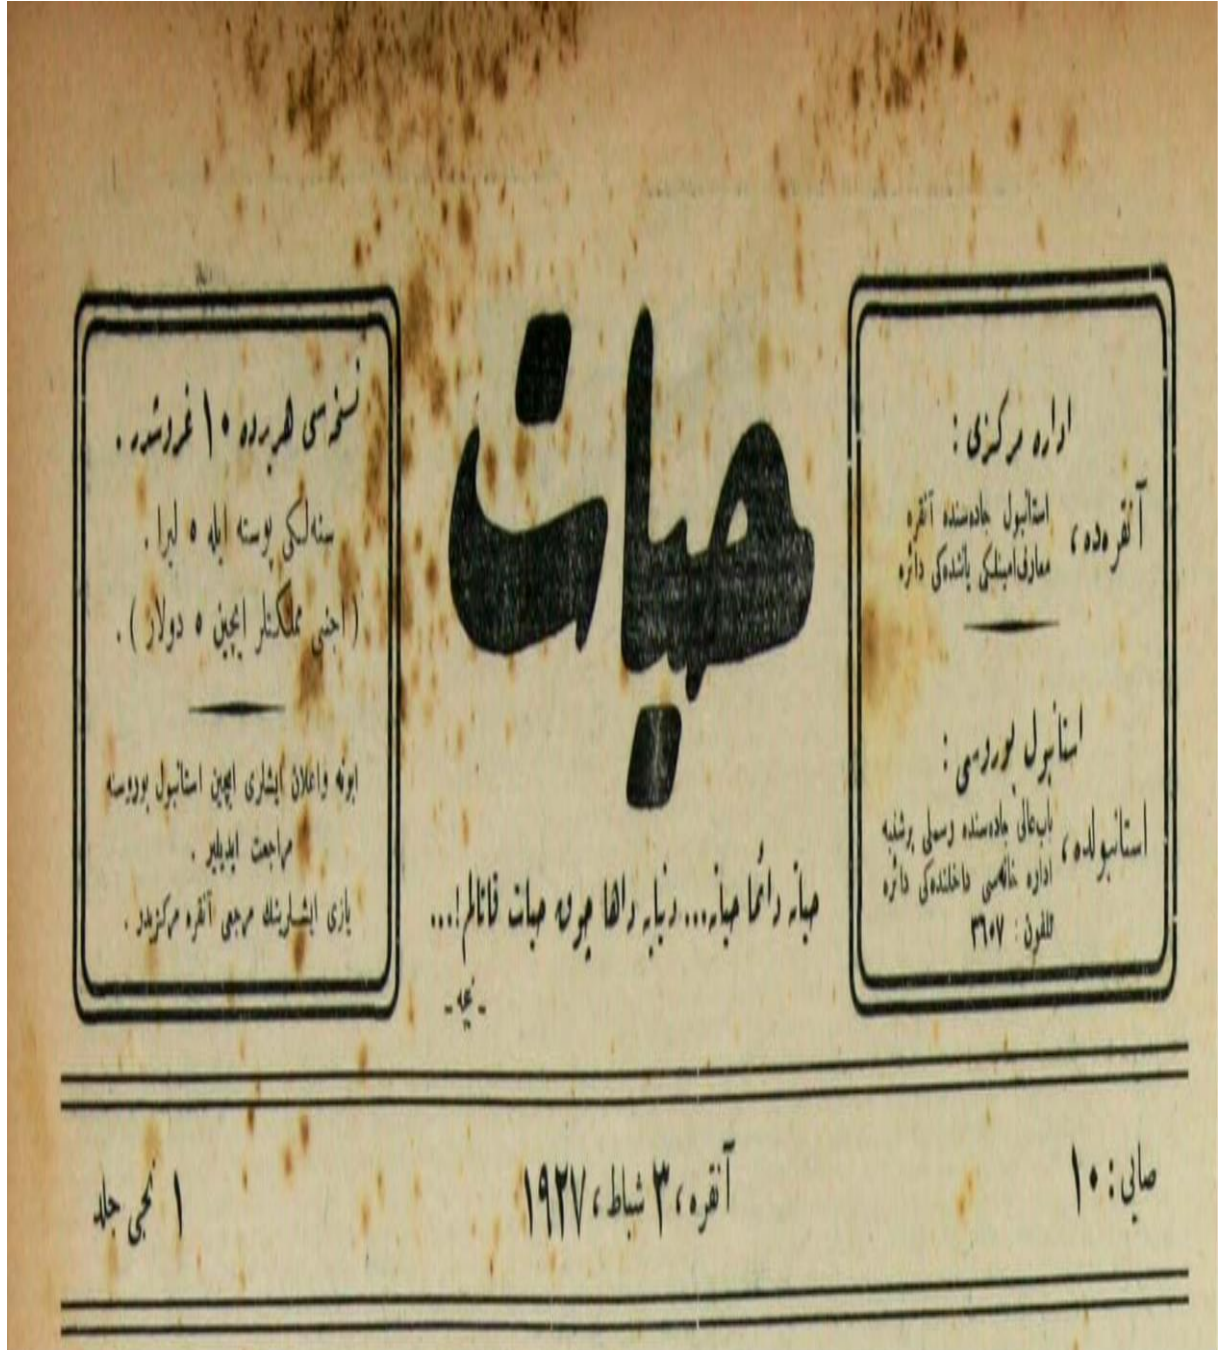 اداره مركزی :
آنقره‌ده ،
استانبول جاده‌سنده آنقره
معارف امینلكی یاننده‌كی دائره
استانبول بوروسی :
استانبولده ،
باب‌عالی جاده‌سنده رسملی پرشنبه
اداره خانه‌سی داخلنده‌كی دائره
تلفون : ٣٦٠٧
حیات
حیاته دائما حیاته... دنیایه داها چوق حیات قاتالم !...
- نیچه -
نسخه‌سی هر یرده ١٠ غروشدر .
سنه‌لكی پوسته ایله ٥ لیرا .
( اجنبی مملكتلر ایچین ٥ دولار ) .
ابونه واعلان ایشلری ایچین استانبول بوروسنه
مراجعت ایدیلیر .
یازی ایشلرینك مرجعی آنقره مركزیدر .
صایی : ١٠
آنقره ، ٣ شباط ، ١٩٢٧
١ نجی جلد